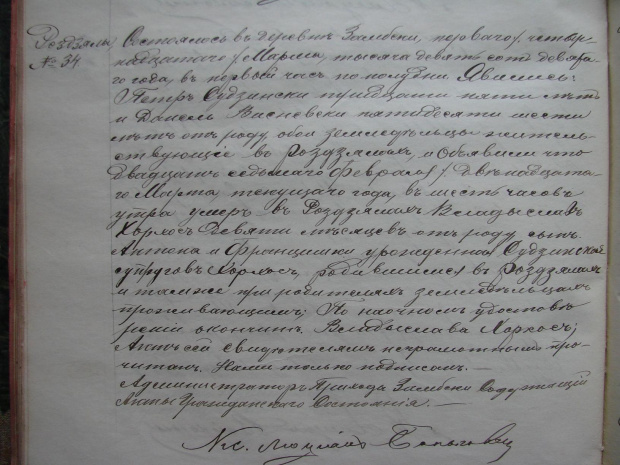 Роздзялы Состоялось въ деревнѣ Замбски, перваго/четыр-
№ 34 надцатаго/Марта, тысяча девять сотъ девята-
го года, въ первый часъ по полудни. Явились:
Петръ Судзински тридцати пяти лѣтъ
и Даніель Висневски пятидесяти шести
лѣтъ отъ роду, оба земледѣльцы житель-
ствующіе въ Роздзялахъ, и объявили что
двадцать седьмаго Февраля/двѣнадцата-
го Марта, текущаго года, въ шесть часовъ
утра умеръ въ Роздзялахъ Владыславъ
девяти мѣсяцевъ отъ роду, сынъ
Антона и Францишки урожденной Судзинской
супруговъ родившійся въ Роздзялахъ
и тамже при родителяхъ земледѣльцахъ
проживающимъ; По наочномъ удостовѣ-
реніи о кончинѣ Владыслава
Актъ сей свидѣтелямъ неграмотнымъ про-
читанъ. Нами только подписанъ.
Администраторъ Прихода Замбски Содержащій
Акты Гражданскаго Состоянія. —
Кс.